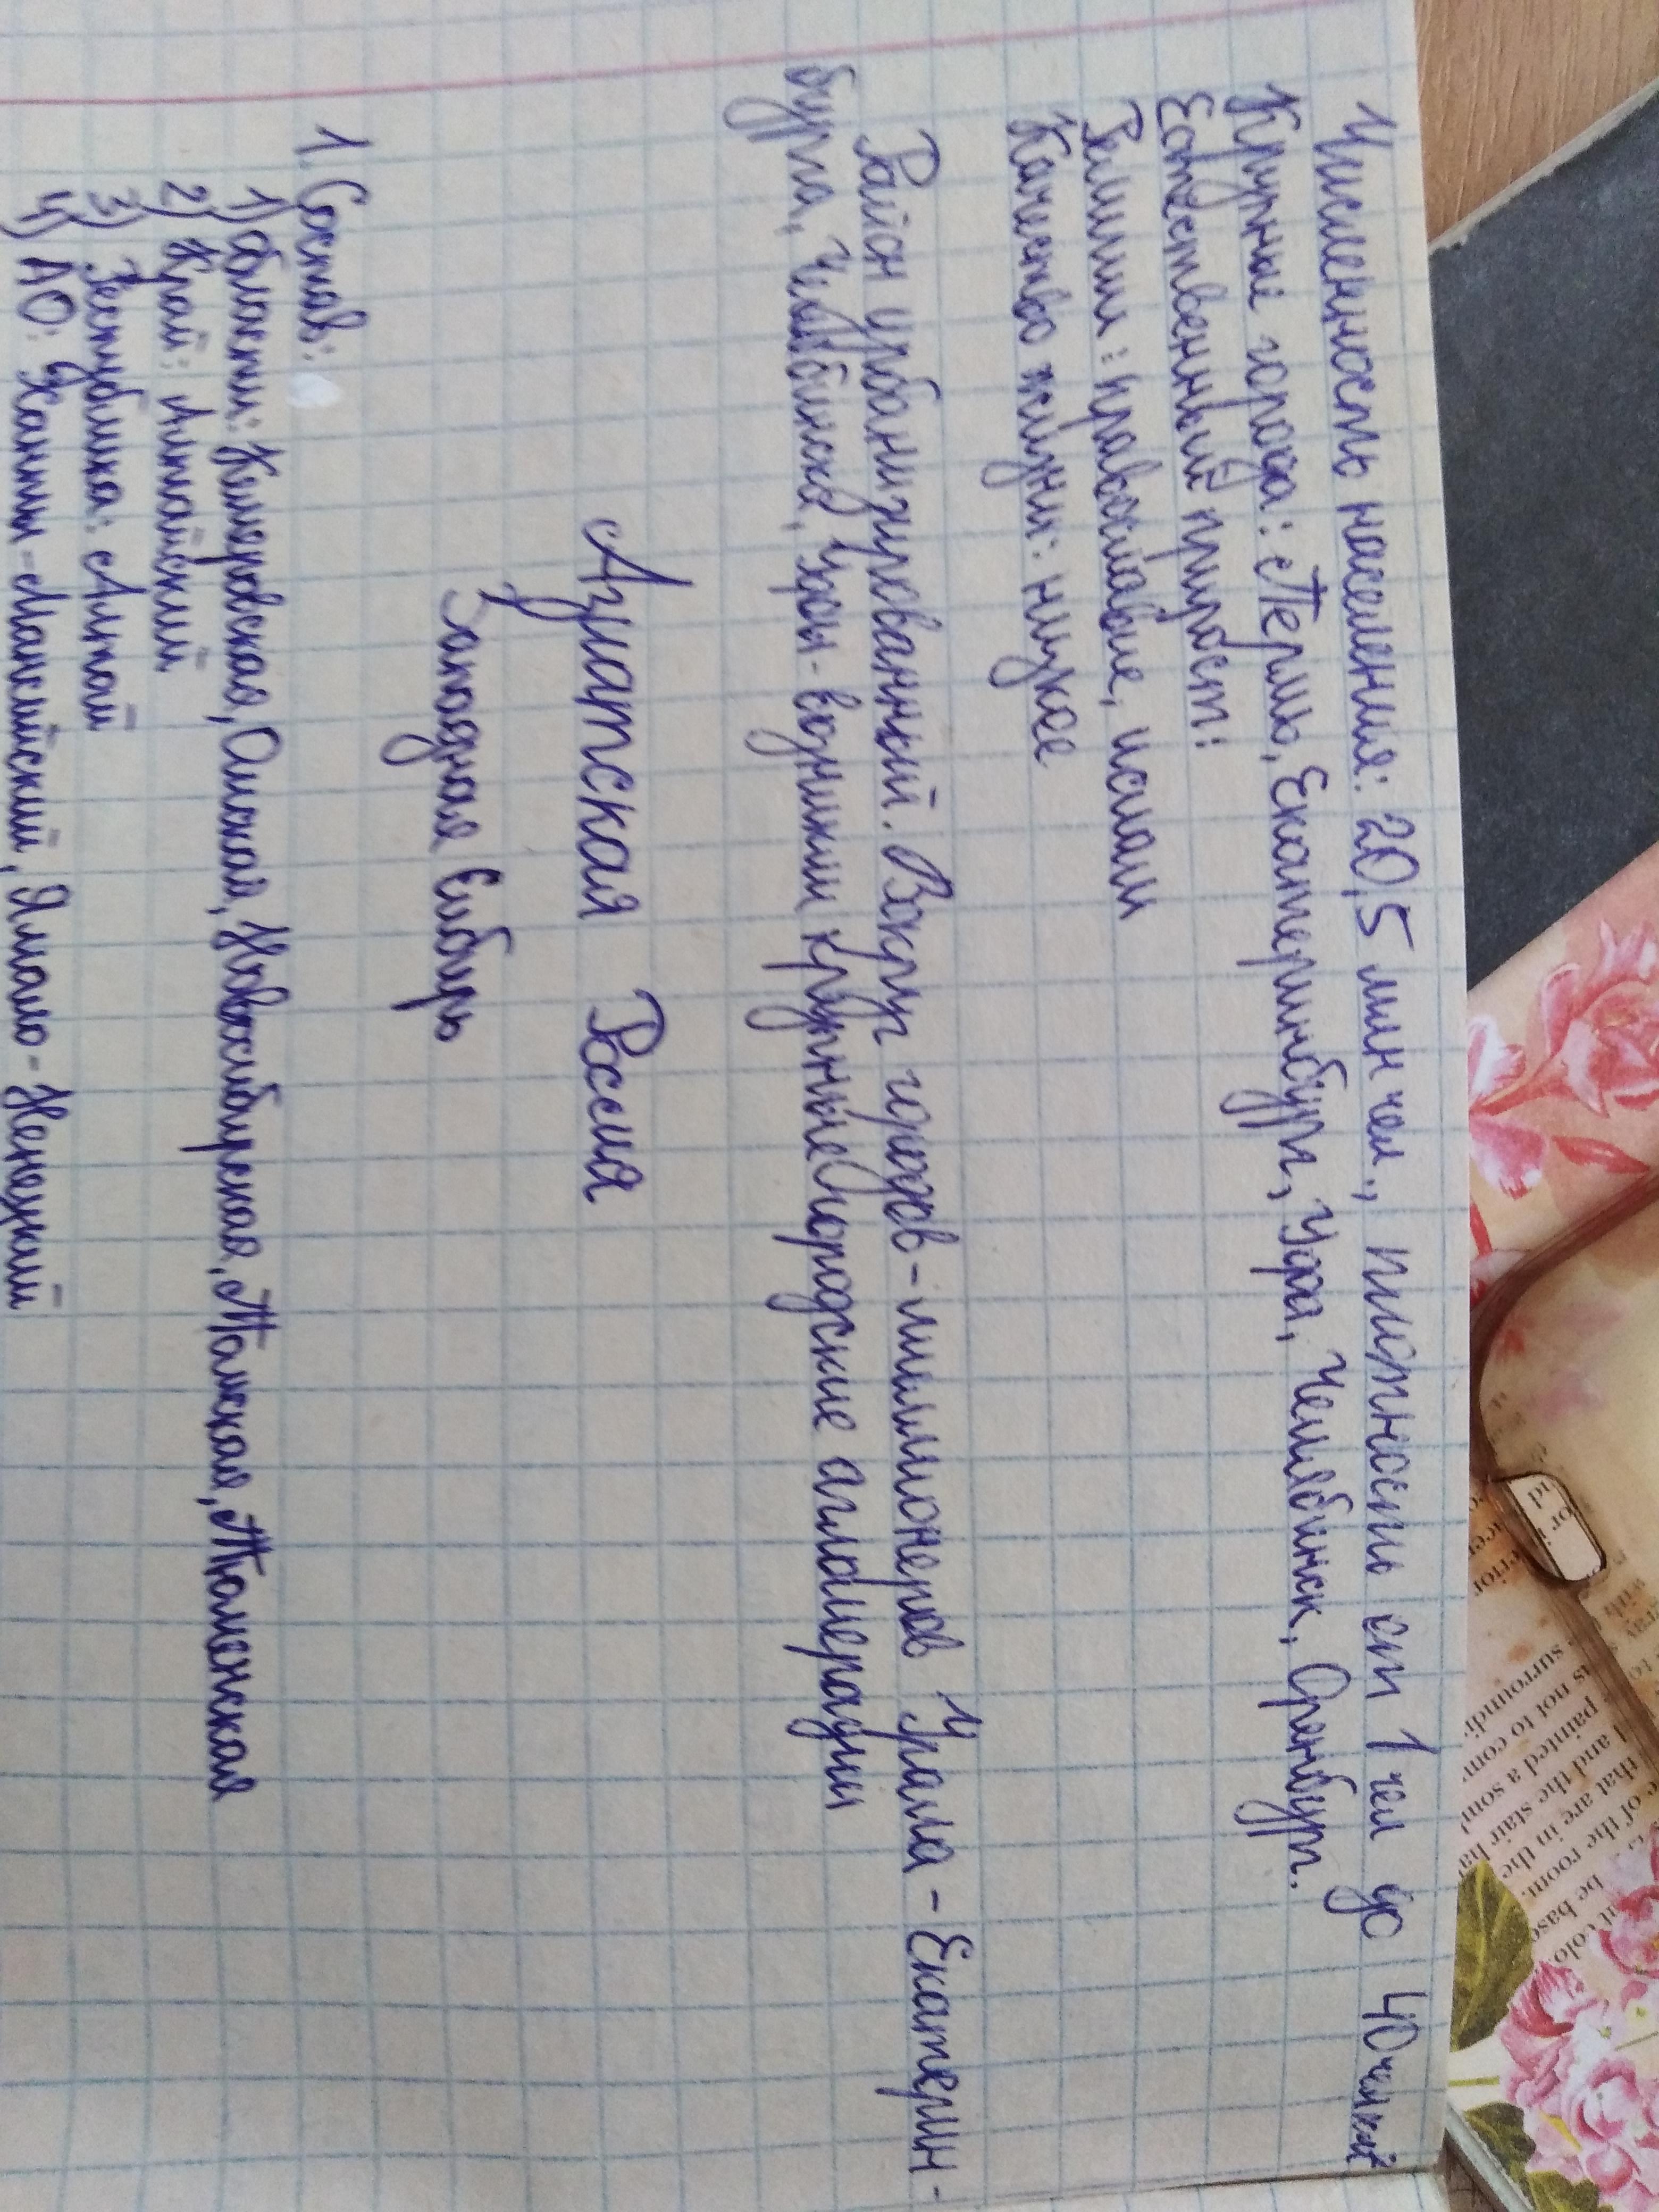 Численность населения: 20,5 млн чел., плотность от 1 чел до 40 чел/км²
Крупные города: Пермь, Екатеринбург, Уфа, Челябинск, Оренбург.
Естественный прирост:
Религии: православие, ислам
Качество жизни: низкое
Район урбанизированный. Вокруг городов-миллионеров Урала - Екатерин-
бурга, Челябинска, Уфы - возникли крупные городские агломерации
Азиатская Россия
Западная Сибирь
1. Состав:
1) Области: Кемеровская, Омская, Новосибирская, Томская, Тюменская
2) Край: Алтайский
3) Республика: Алтай
4) АО: Ханты-Мансийский, Ямало-Ненецкий